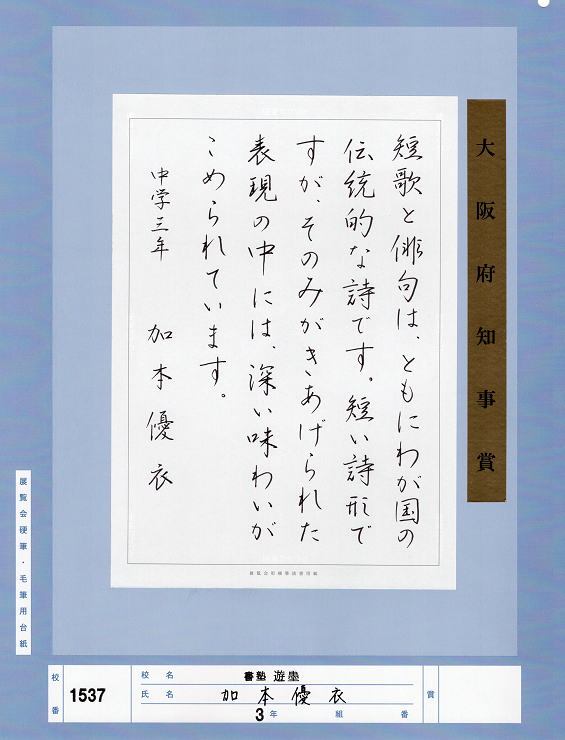 大阪府知事賞
短歌と俳句は、ともにわが国の
伝統的な詩です。短い詩形で
すが、そのみがきあげられた
表現の中には、深い味わいが
こめられています。
中学三年 加本優衣
展覧会硬筆・毛筆用台紙
校番 1537
校名 書塾 遊墨
氏名 加本優衣
3年 組 番
賞